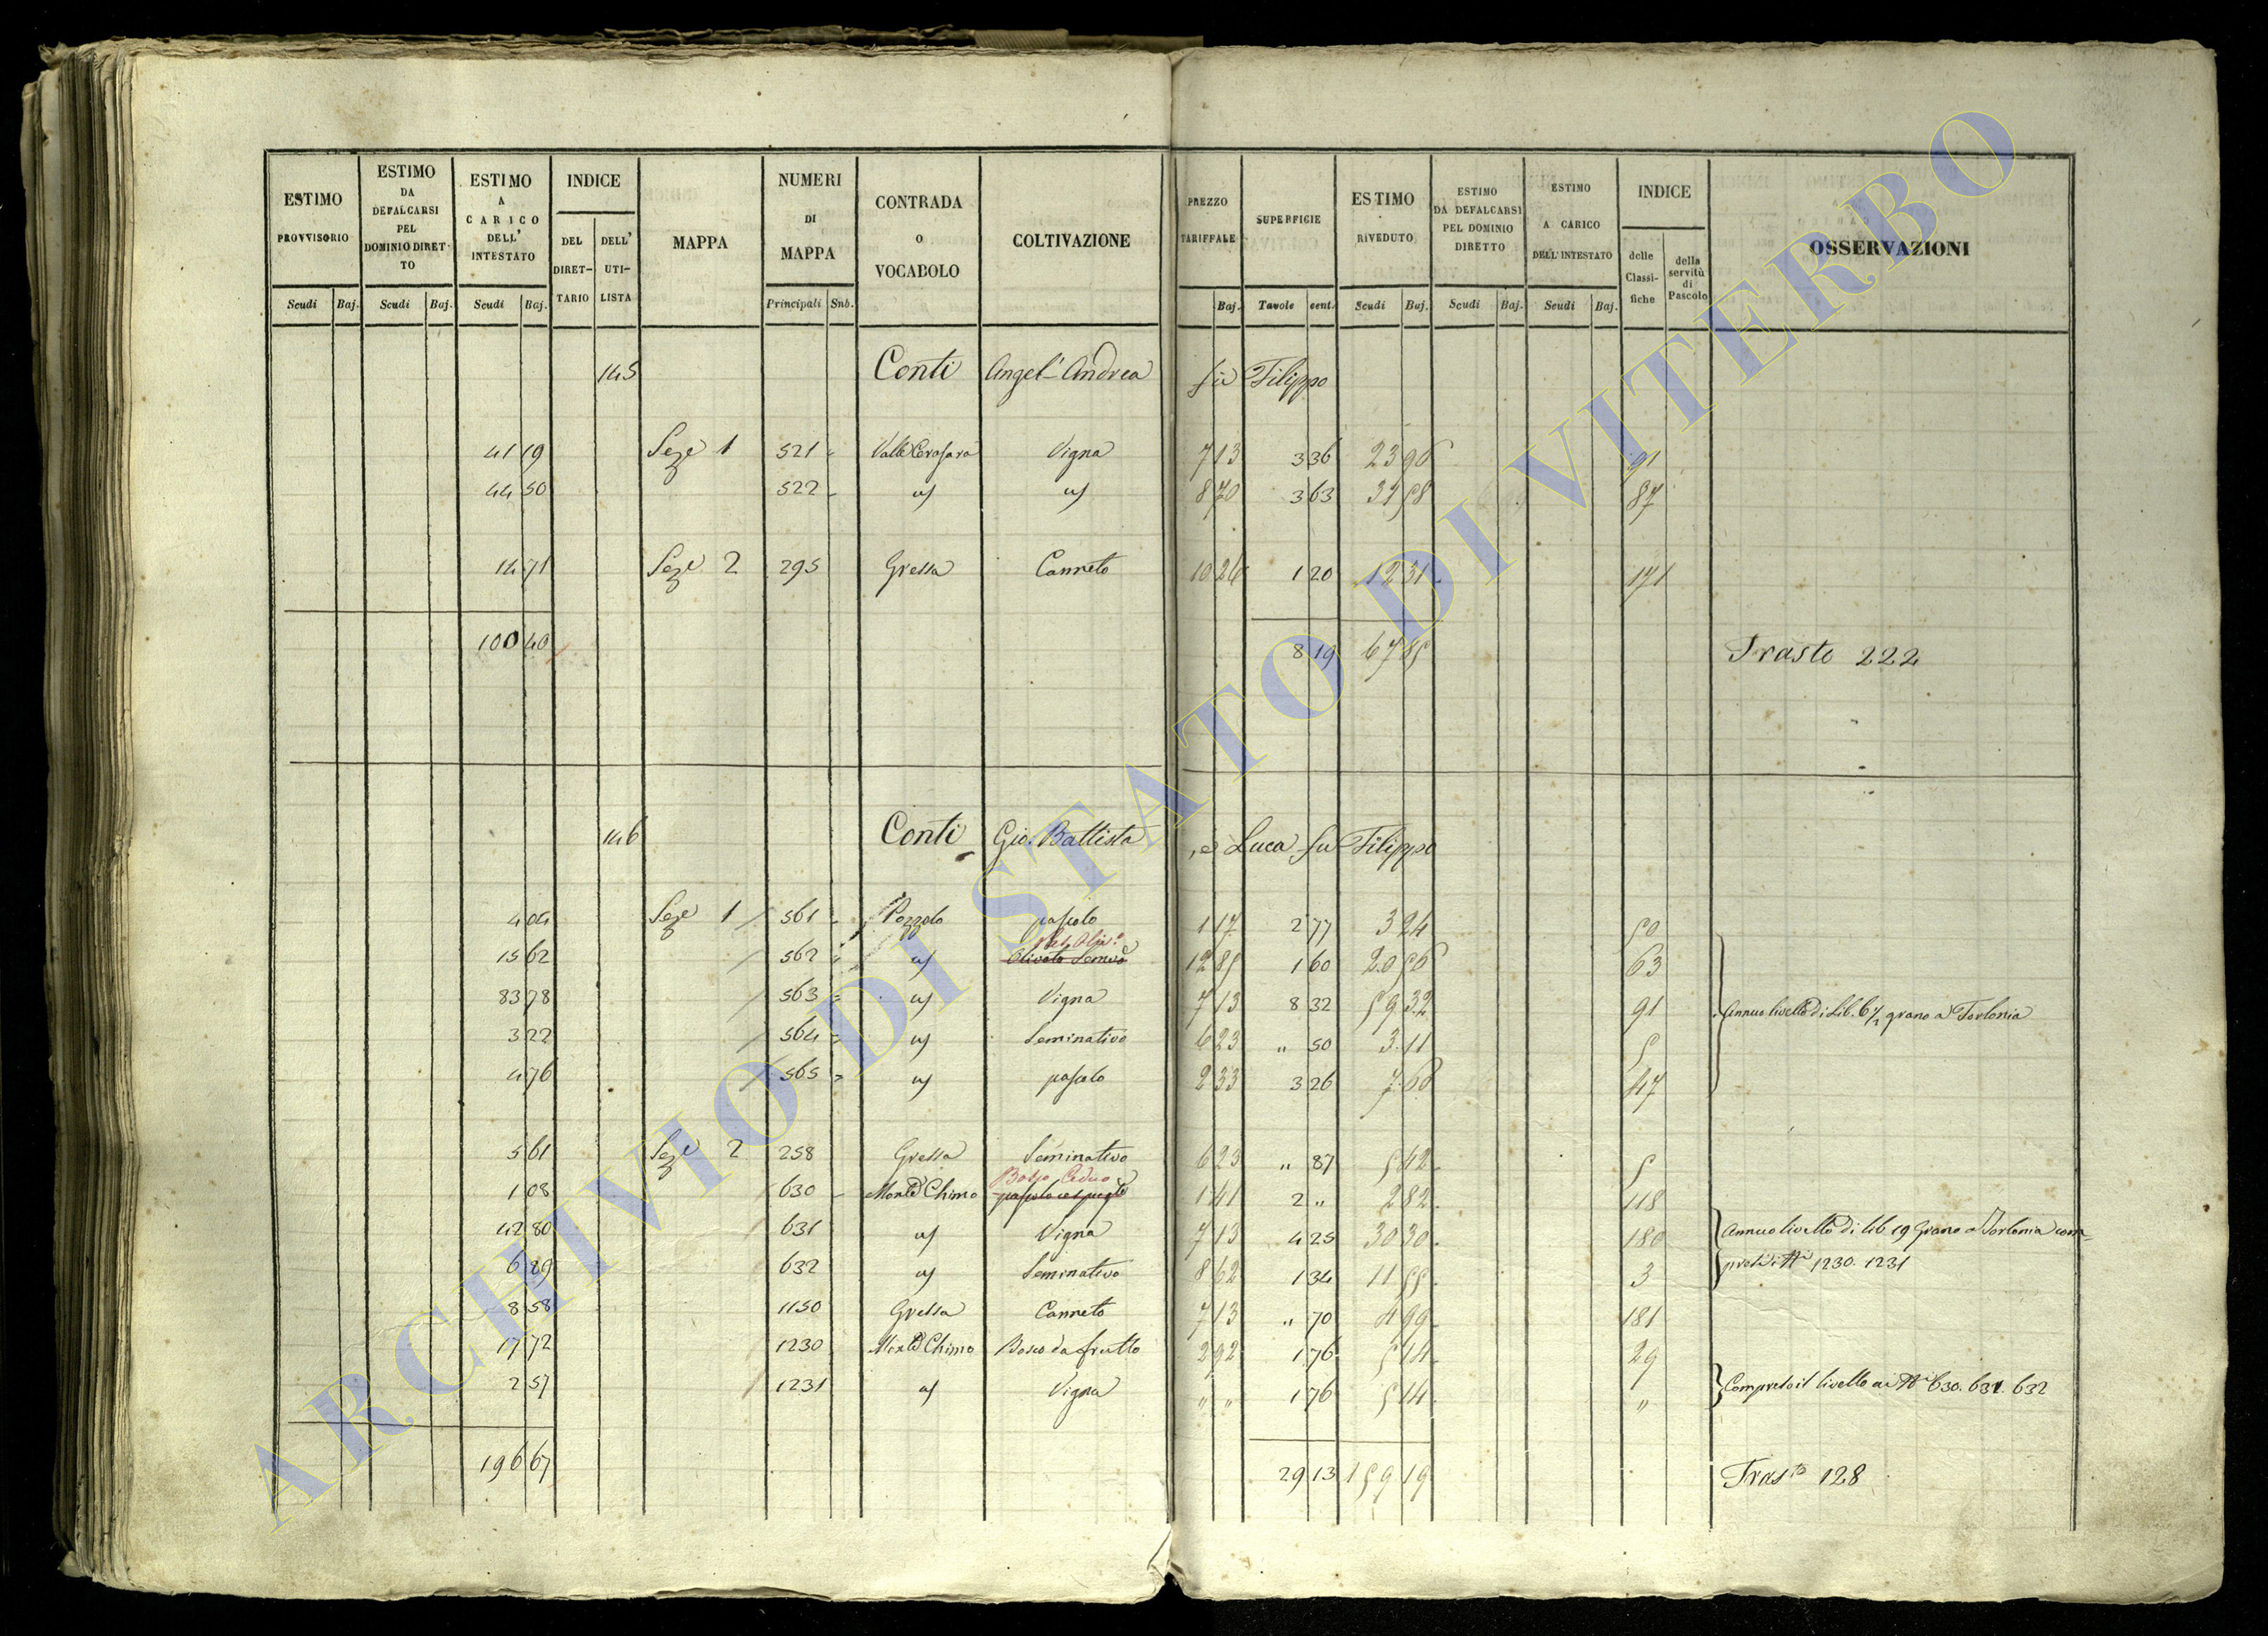 ESTIMO PROVVISORIO Scudi Baj.
ESTIMO DA DEFALCARSI PEL DOMINIO DIRETTO Scudi Baj.
ESTIMO A CARICO DELL' INTESTATO Scudi Baj.
INDICE DEL DIRETTARIO DELL' UTILISTA
MAPPA
NUMERI DI MAPPA Principali Sub.
CONTRADA O VOCABOLO
COLTIVAZIONE
PREZZO TARIFFALE Baj.
SUPERFICIE Tavole cent.
ESTIMO RIVEDUTO Scudi Baj.
ESTIMO DA DEFALCARSI PEL DOMINIO DIRETTO Scudi Baj.
ESTIMO A CARICO DELL' INTESTATO Scudi Baj.
INDICE delle Classifiche della servitù di Pascolo
OSSERVAZIONI
145 Conti Angel'Andrea fù Filippo
41 19 Seze 1 521 Valle Cerasara Vigna 7 13 3 36 23 96 91
44 50 522 " " 8 70 3 63 31 58 87
14 71 Seze 2 295 Gressa Canneto 10 26 1 20 12 31 171
100 40 8 19 67 85 Trasto 222
146 Conti Gio. Battista, e Luca fu Filippo
4 04 Seze 1 561 Pozzolo pascolo 1 17 2 77 3 24 50
15 62 562 " Olivato Semivo 12 85 1 60 20 56 63
83 78 563 " Vigna 7 13 8 32 59 32 91 Annuo livello di Lib. 6 1/2 grano a Torlonia
3 22 564 " Seminativo 6 23 " 50 3 11 5
4 76 565 " pascolo 2 33 3 26 7 60 47
5 61 Seze 2 258 Gressa Seminativo 6 23 " 87 5 42 5
Bosco Ceduo
1 08 630 Monte Chimo pascolo cespugto 1 41 2 " 2 82 118
42 80 631 " Vigna 7 13 4 25 30 30 180 Annuo livello di lib 19 Grano a Torlonia com-
6 89 632 " Seminativo 8 62 1 34 11 55 3 presi i Ni 1230. 1231
8 58 1150 Gressa Canneto 7 13 " 70 4 99 181
17 72 1230 Monte Chimo Bosco da frutto 2 92 1 76 5 14 29
2 57 1231 " Vigna " " 1 76 5 14 " Compreso il livello ai Ni 630. 631. 632
196 67 29 13 159 19 Trasto 128
ARCHIVIO DI STATO DI VITERBO